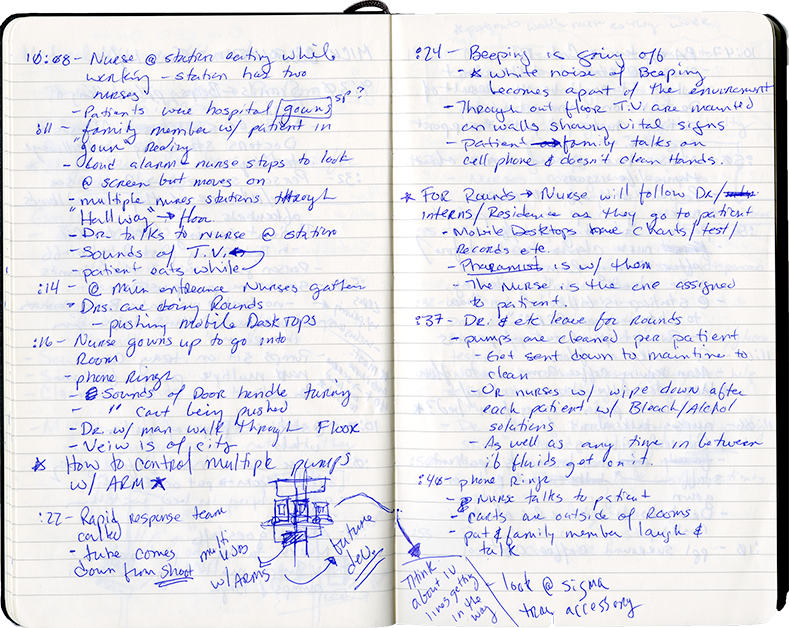 10:08 - Nurse @ station eating while
working - station has two
nurses
- Patients were hospital [gown] SP?
:11 - family member w/ patient in
"goun" Reading
- Loud alarm - nurse stops to look
@ screen but moves on
- multiple nures stations through
"Hallway" → floor
- Dr. talks to Nurse @ station
- Sounds of T.V.
- patient eats while
:14 - @ main entreance Nurses gather
- Drs. are doing Rounds
- pushing mobile DeskTops
:16 - Nurse gowns up to go into
Room
- phone Rings
- Sounds of Door handle turing
- " cart being pushed
- Dr. w/ man walk through Floor
- Veiw is of city
* How to control multiple pumps
w/ ARM *
:22 - Rapid response team
called
- tube comes
down from shoot
multi
w/ARMS
future
dev.
:24 - Beeping is going off
- * white noise of Beeping
becomes apart of the enviroment
- Through out floor T.V. are mounted
on walls showing vital signs
- patient → family talks on
cell phone & doesn't clean Hands.
* FOR Rounds → Nurse will follow Dr/
interns/Residence as they go to patient
- Mobile Desktops have charts/test/
Records etc.
- Pharamist is w/ them
- The Nurse is the one assigned
to patient.
:37 - Dr. & etc leave for Rounds
- pumps are cleaned per patient
- Get sent down to maintine to
clean
- OR nurses w/ wipe down after
each patient w/ Bleach/Alchol
solutions
- As well as any time in between
if fluids get on it.
:40 - phone Rings
- Nurse talks to patient
- carts are outside of Rooms
- pat & family member laugh &
talk
Think
about IV
lines getting
in the
way
- look @ sigma
tray accessory